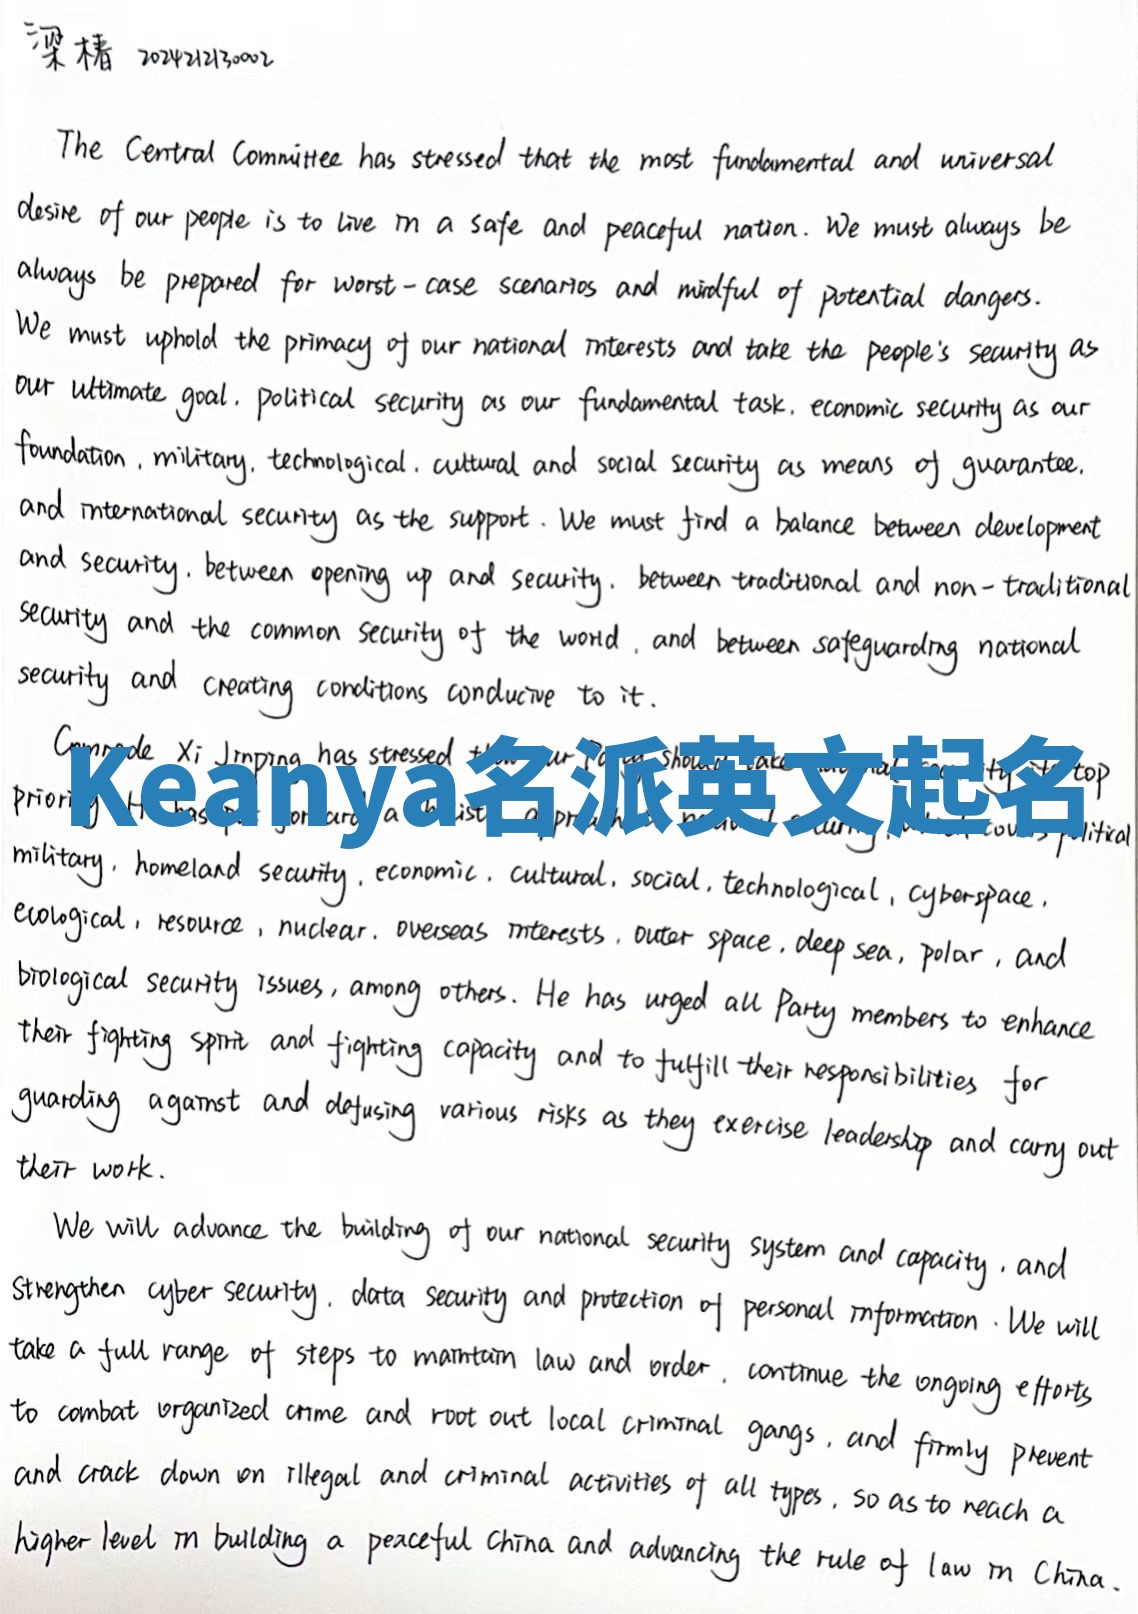 梁椿 2024212130002
The Central Committee has stressed that the most fundamental and universal
desire of our people is to live in a safe and peaceful nation. We must always be
always be prepared for worst-case scenarios and mindful of potential dangers.
We must uphold the primacy of our national interests and take the people's security as
our ultimate goal, political security as our fundamental task, economic security as our
foundation, military, technological, cultural and social security as means of guarantee,
and international security as the support. We must find a balance between development
and security, between opening up and security, between traditional and non-traditional
security and the common security of the world, and between safeguarding national
security and creating conditions conducive to it.
Comrade Xi Jinping has stressed should take top
Keanya名派英文起名
political
military, homeland security, economic, cultural, social, technological, cyberspace,
ecological, resource, nuclear, overseas interests, outer space, deep sea, polar, and
biological security issues, among others. He has urged all Party members to enhance
their fighting spirit and fighting capacity and to fulfill their responsibilities for
guarding against and defusing various risks as they exercise leadership and carry out
their work.
We will advance the building of our national security system and capacity, and
strengthen cyber security, data security and protection of personal information. We will
take a full range of steps to maintain law and order, continue the ongoing efforts
to combat organized crime and root out local criminal gangs, and firmly prevent
and crack down on illegal and criminal activities of all types, so as to reach a
higher level in building a peaceful China and advancing the rule of law in China.